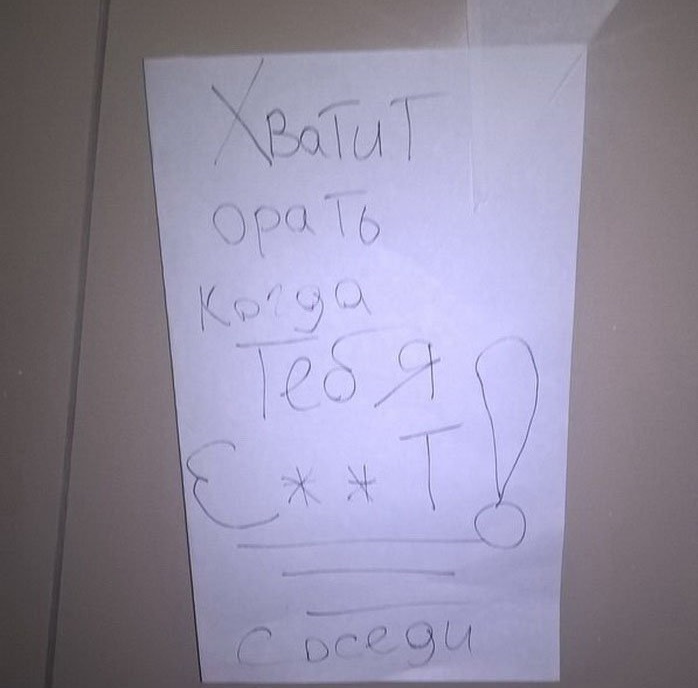 Хватит
орать
когда
тебя
Е**Т!
Соседи